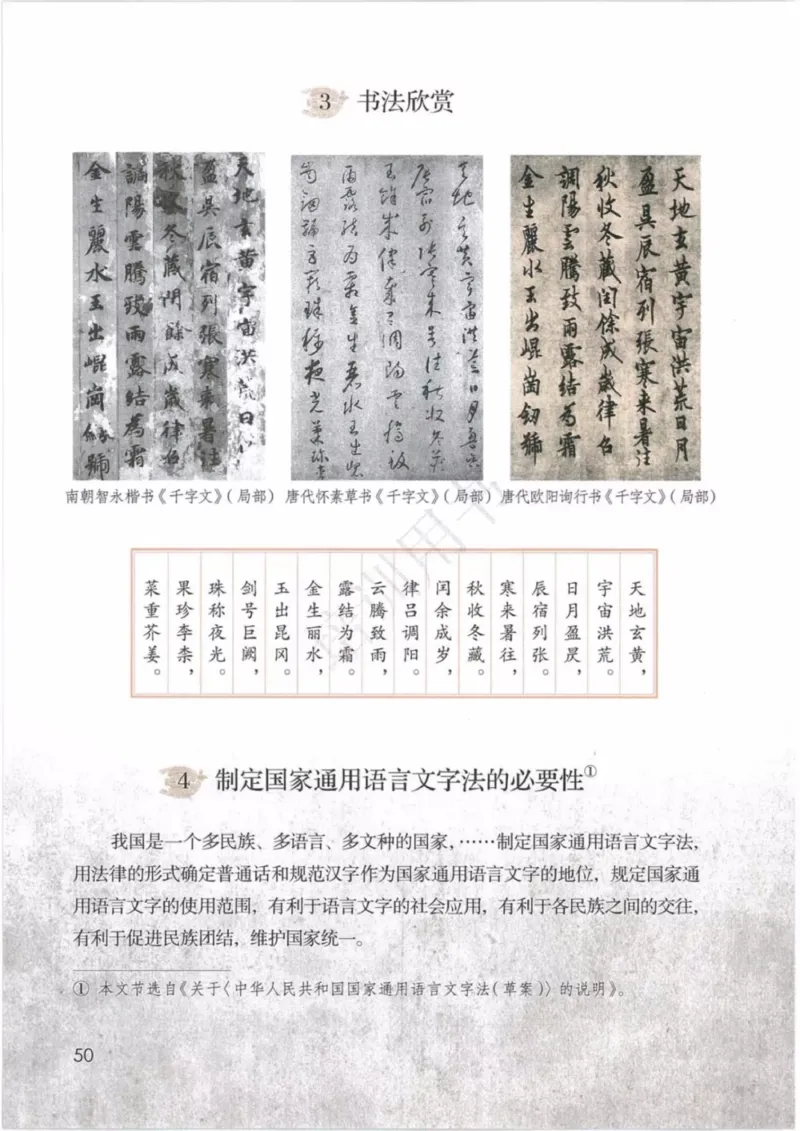 3 书法欣赏
天地玄黄宇宙洪荒日
盈昃辰宿列張寒来暑往
秋收冬藏閏餘成歲律吕
調陽雲騰致雨露結為霜
金生麗水玉出崐崗劔號
天地玄黄宇宙洪荒日月
盈昃辰宿列張寒来暑往
秋收冬藏閏餘成歲律吕
調陽雲騰致雨露結為霜
金生麗水玉出崐崗劔號
南朝智永楷书《千字文》(局部)
唐代怀素草书《千字文》(局部)
唐代欧阳询行书《千字文》(局部)
天地玄黄,
宇宙洪荒。
日月盈昃,
辰宿列张。
寒来暑往,
秋收冬藏。
闰余成岁,
律吕调阳。
云腾致雨,
露结为霜。
金生丽水,
玉出昆冈。
剑号巨阙,
珠称夜光。
果珍李柰,
菜重芥姜。
4 制定国家通用语言文字法的必要性①
我国是一个多民族、多语言、多文种的国家,……制定国家通用语言文字法,
用法律的形式确定普通话和规范汉字作为国家通用语言文字的地位,规定国家通
用语言文字的使用范围,有利于语言文字的社会应用,有利于各民族之间的交往,
有利于促进民族团结,维护国家统一。
① 本文节选自《关于〈中华人民共和国国家通用语言文字法(草案)〉的说明》。
50